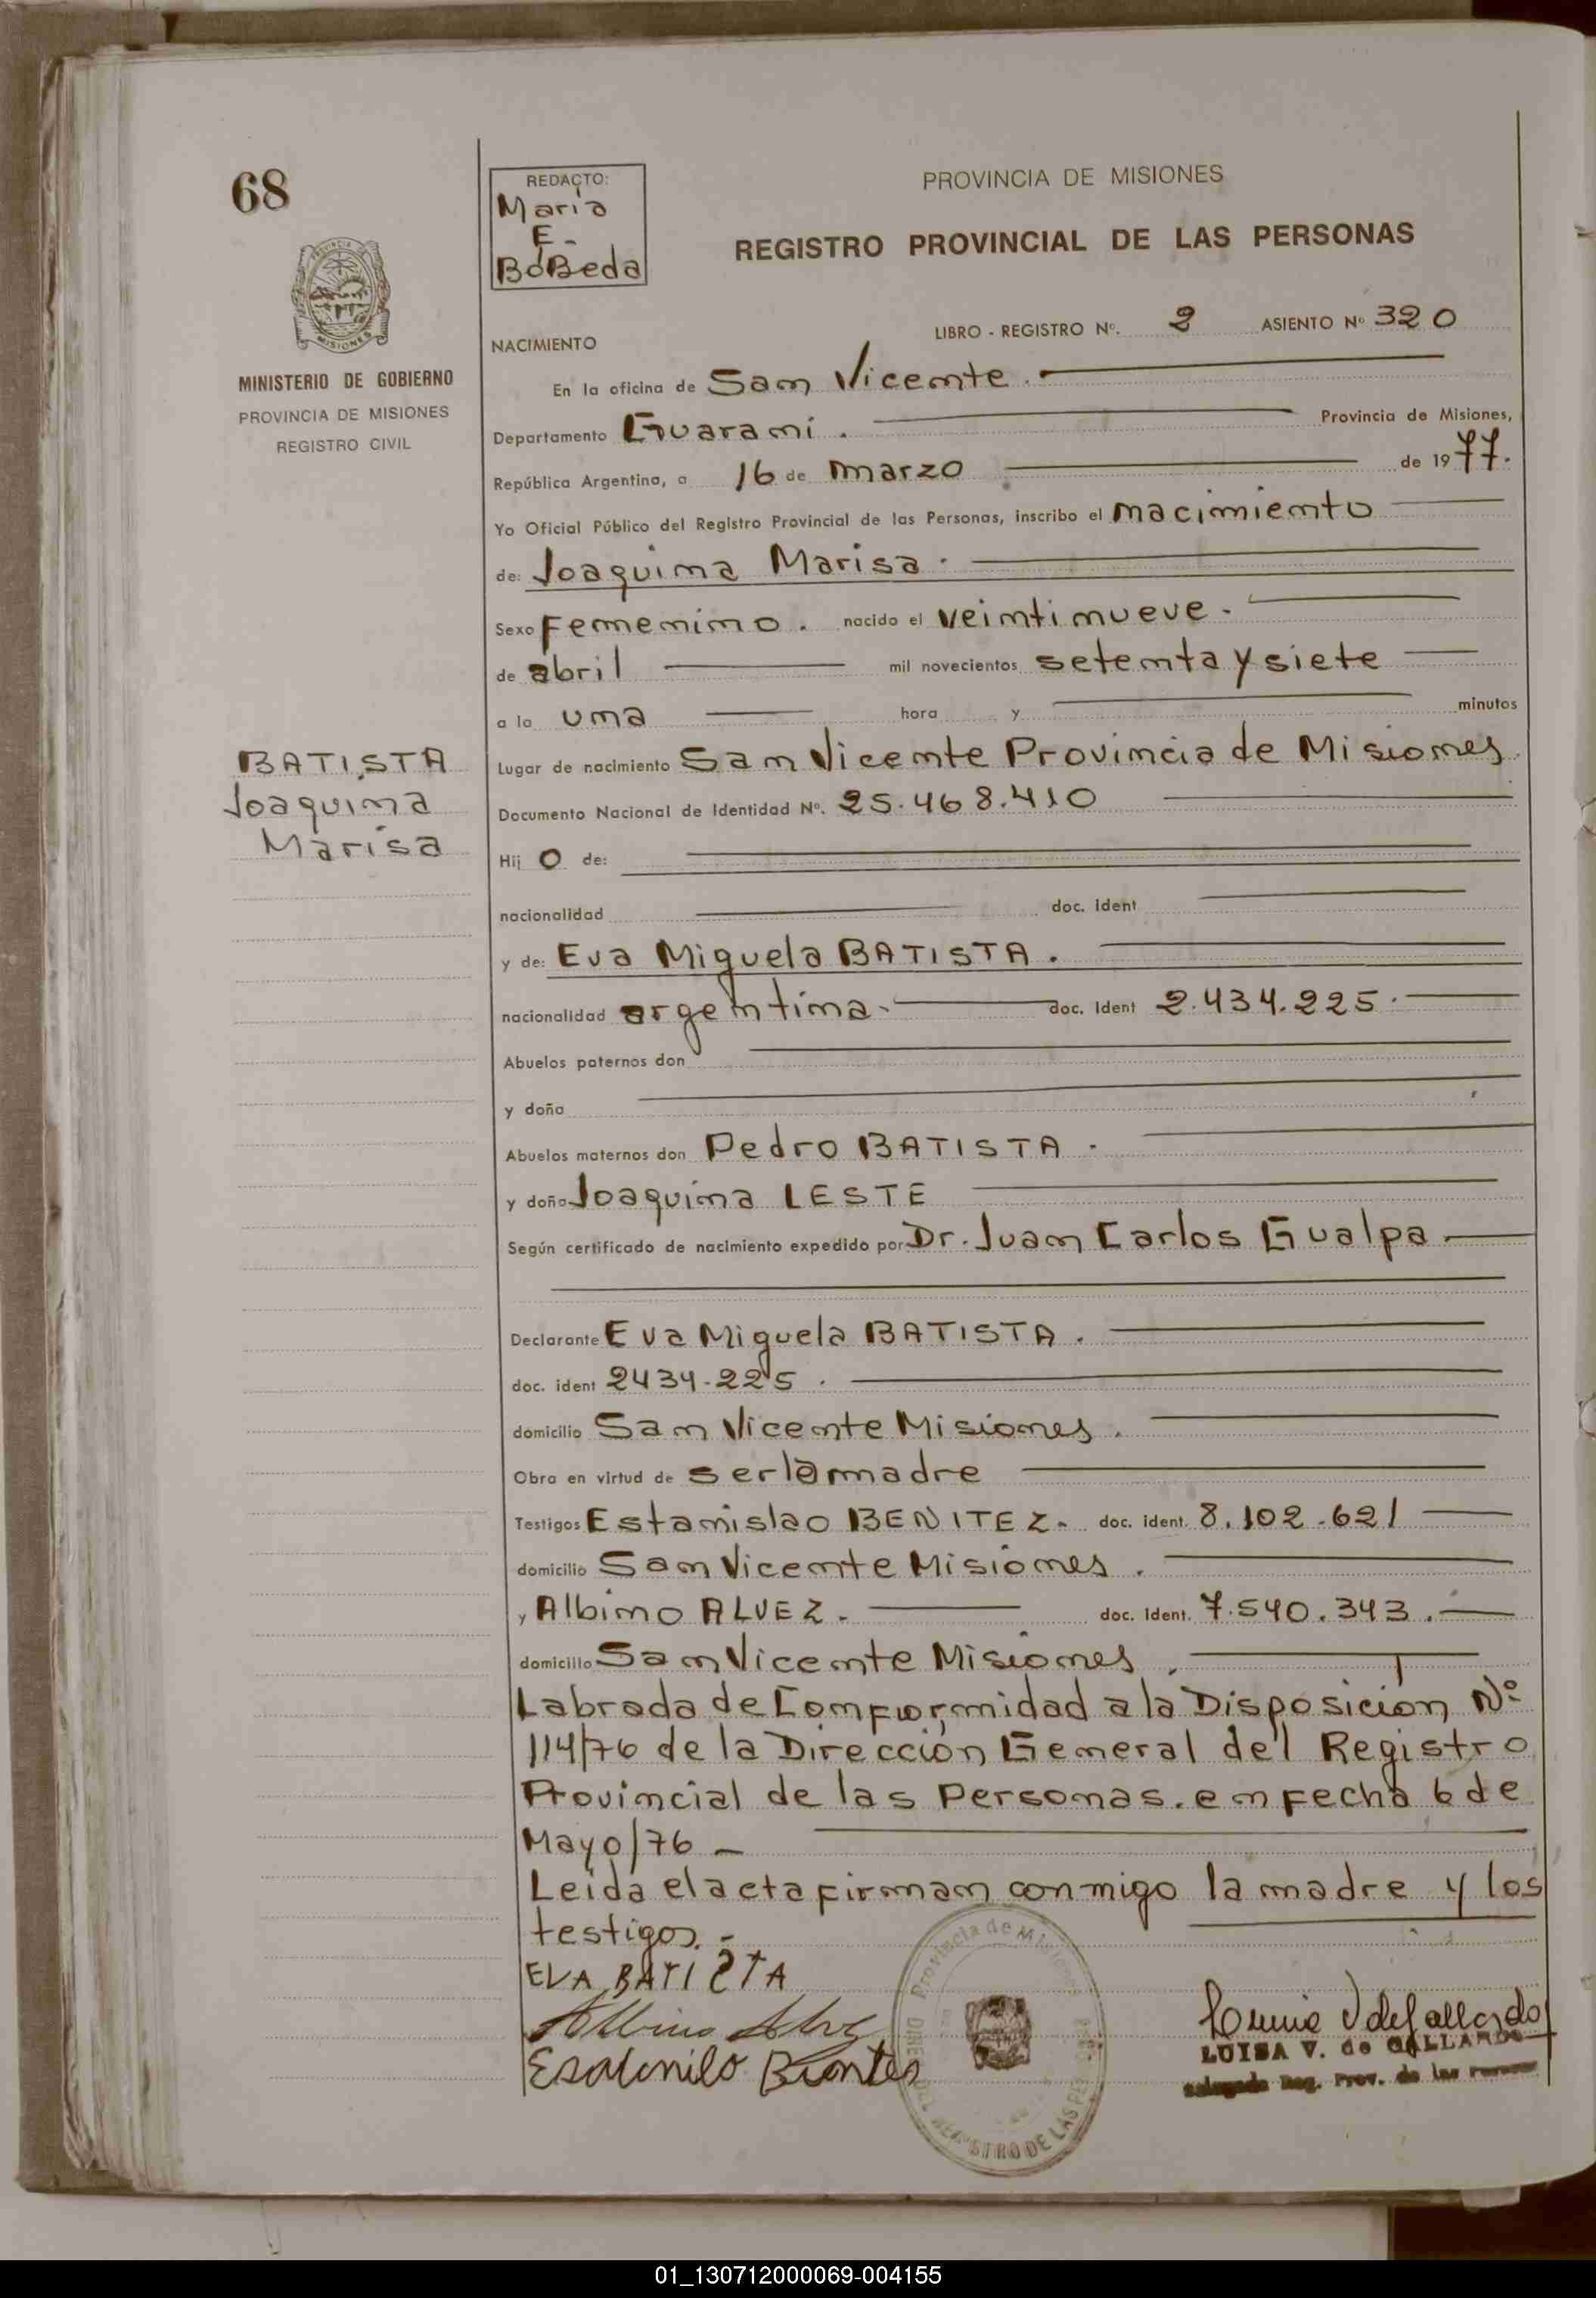 68
REDACTO:
Maria
E.
BoBeda
PROVINCIA DE MISIONES
REGISTRO PROVINCIAL DE LAS PERSONAS
MISIONES
MINISTERIO DE GOBIERNO
PROVINCIA DE MISIONES
REGISTRO CIVIL
NACIMIENTO
LIBRO - REGISTRO Nº. 2 ASIENTO Nº 320
En la oficina de San Vicente.
Departamento Guarani. Provincia de Misiones,
República Argentina, a 16 de marzo de 1977.
Yo Oficial Público del Registro Provincial de las Personas, inscribo el nacimiento
de: Joaquina Marisa.
Sexo Femenino. nacido el veintinueve.
de abril mil novecientos setenta y siete
a la una hora y minutos
Lugar de nacimiento San Vicente Provincia de Misiones
BATISTA
Joaquina
Marisa
Documento Nacional de Identidad Nº. 25.468.410
Hij o de:
nacionalidad doc. ident
y de: Eva Miguela BATISTA.
nacionalidad argentina. doc. ident 2.434.225.
Abuelos paternos don
y doña
Abuelos maternos don Pedro BATISTA.
y doña Joaquina LESTE
Según certificado de nacimiento expedido por Dr. Juan Carlos Gualpa
Declarante Eva Miguela BATISTA.
doc. ident 2434.225.
domicilio San Vicente Misiones.
Obra en virtud de ser la madre
Testigos Estanislao BENITEZ. doc. ident. 8.102.621
domicilio San Vicente Misiones.
y Albino ALVEZ. doc. Ident. 7.540.343.
domicilio San Vicente Misiones.
Labrada de Conformidad a la Disposición Nº
114/76 de la Dirección General del Registro
Provincial de las Personas. en Fecha 6 de
Mayo/76
Leida el acta firman conmigo la madre y los
testigos.
EVA BATISTA
Provincia de Misiones
REGISTRO DE LAS PER
LUISA V. de GALLARDO
Reg. Prov. de las
01_130712000069-004155